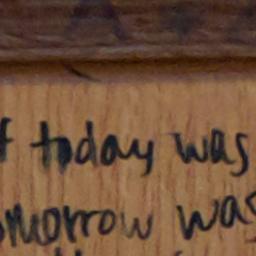 f today was
omorrow was